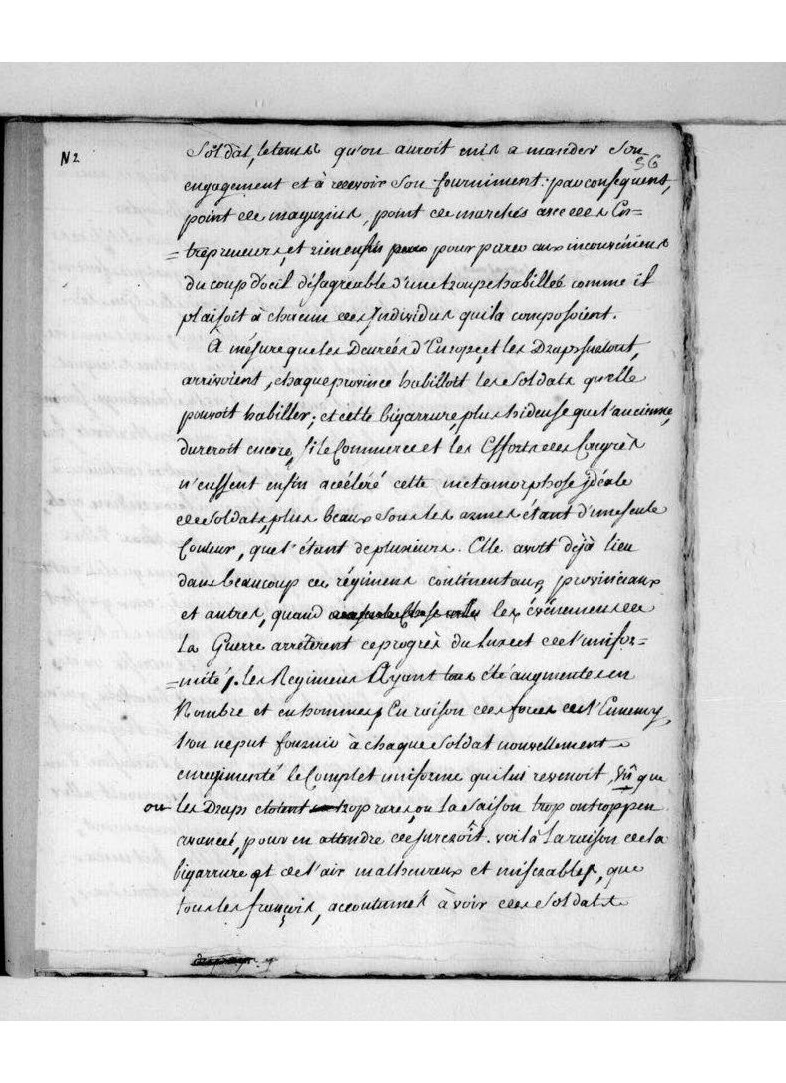 N 2
Soldat, le tems qu'on auroit mis a mander son
56
engagement et à recevoir son fourniment. par consequent,
point de magazins, point de marchés avec des En=
=trepreneurs, et rien enfin pour parer aux inconvéniens
du coup d'oeil désagreable d'une troupe habillée comme il
plaisoit à chacun des Individus qui la composoient.
A mésure que les Denrées d'Europe, et les Draps surtout,
arrivoient, chaque province habilloit les Soldats qu'elle
pouvoit habiller; et cette bigarrure, plus hideuse que l'ancienne,
dureroit encore, si le Commerce et les Efforts des Congrès
n'eussent enfin accéléré cette metamorphose idéale
de Soldats, plus beaux sous les armes étant d'une seule
Couleur, que l'étant de plusieurs. Elle avoit déjà lieu
dans beaucoup de régimens continentaux, provinciaux
et autres, quand les événemens de
la Guerre arrêterent ce progrès du luxe et de l'unifor=
=mité. les Regimens Ayant tous été augmentés en
Nombre et en hommes, En raison des forces de l'Ennemy,
l'on ne put fournir à chaque Soldat nouvellement
enregimenté le Complet uniforme qui lui revenoit, vû que
ou les Draps étoient trop rares, ou la Saison trop ou trop peu
avancée, pour en attendre de surcroît. voilà la raison de la
bigarrure et de l'air malheureux et miserables, que
tous les françois, accoutumés à voir des Soldats